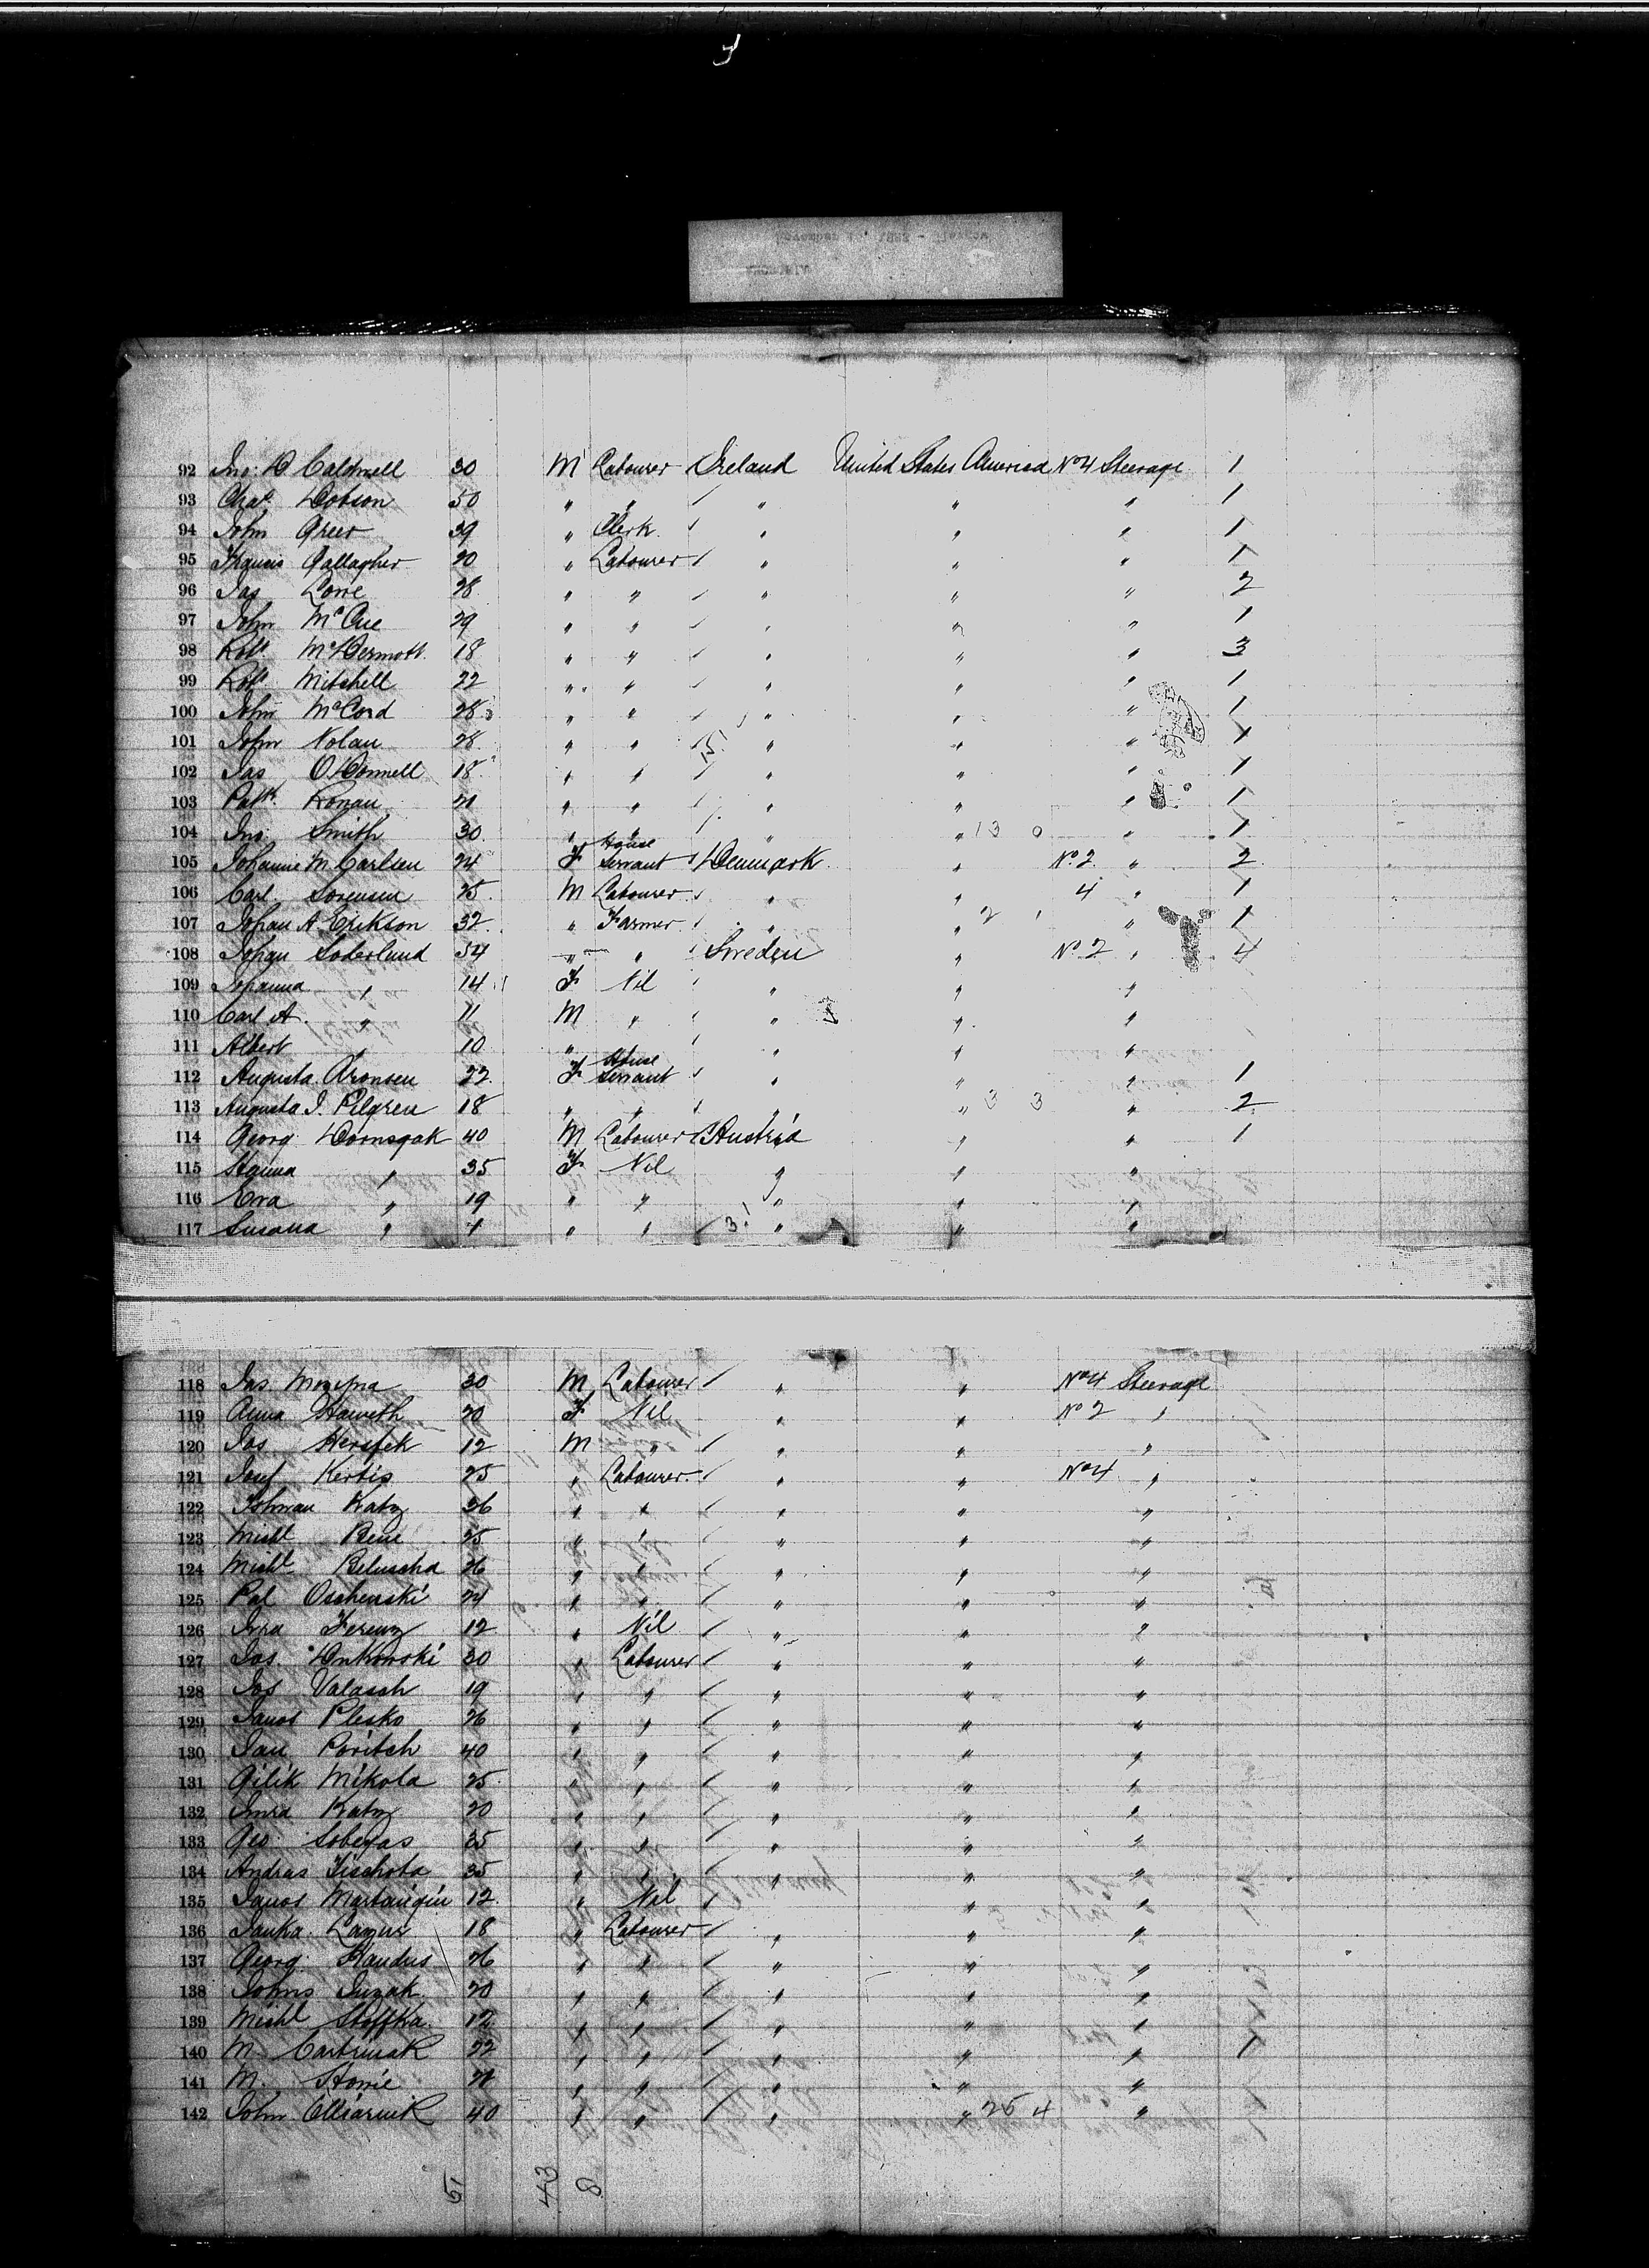 92 Jno: D Caldwell 30 M Labourer Ireland United States America No 4 Steerage 1
93 Chas. Dobson 50 " " " " " 1
94 John Greer 39 " Clerk " " " 1
95 Francis Gallagher 20 " Labourer " " " 1
96 Jas Lowe 28 " " " " " 2
97 John McCue 29 " " " " " 1
98 Robt McDermott 18 " " " " " 3
99 Robt Mitchell 22 " " " " " 1
100 John McCord 28 " " " " " 1
101 John Nolan 28 " " 15 " " " 1
102 Jas O'Donnell 18 " " " " " 1
103 Patk. Ronan 21 " " " " " 1
104 Jno. Smith 30 " " " " 13 0 " 1
105 Johanne M. Carlsen 24 F House Servant Denmark " No. 2 " 2
106 Carl Sorensen 25 M Labourer " " 4 " 1
107 Johan A. Erikson 32 " Farmer " " 2 1 " 1
108 Johan Soderlund 54 " " Sweden " No. 2 " 4
109 Johanna " 14 F Nil " " "
110 Carl A. " 11 M " " " "
111 Albert " 10 " " " " "
112 Augusta Aronsen 22 F House Servant " " " 1
113 Augusta J. Pilgren 18 " " " " 3 3 " 2
114 Georg 40 M Labourer Austria " " 1
115 " 35 F Nil " " "
116 Eva " 19 " " " " "
117 Susana " " " 3 " " "
118 Jas. 30 M Labourer " " No 4 Steerage
119 Anna 20 F Nil " " No 2 "
120 Jos. 12 M " " " "
121 Josef Kertis 25 " Labourer " " No 4 "
122 Katz 36 " " " " "
123 Michl 25 " " " " "
124 Michl Beluscha 26 " " " " "
125 Pal Oschenski 24 " " " " "
126 Ferenz 12 " Nil " " "
127 Jos. 30 " Labourer " " "
128 Jos Valasch 19 " " " " "
129 Janos Plesko 26 " " " " "
130 Jan Poritch 40 " " " " "
131 Gilik Mikola 25 " " " " "
132 Imra Katz 20 " " " " "
133 Geo. 35 " " " " "
134 Andras Tischota 35 " " " " "
135 Janos 12 " Nil " " "
136 Janka Lazur 18 " Labourer " " "
137 Georg 26 " " " " "
138 20 " " " " "
139 Michl Stoffka 12 " " " " "
140 M. 22 " " " " " 1
141 M. " " " " "
142 John 40 " " " " 25 4 "
51 43 8